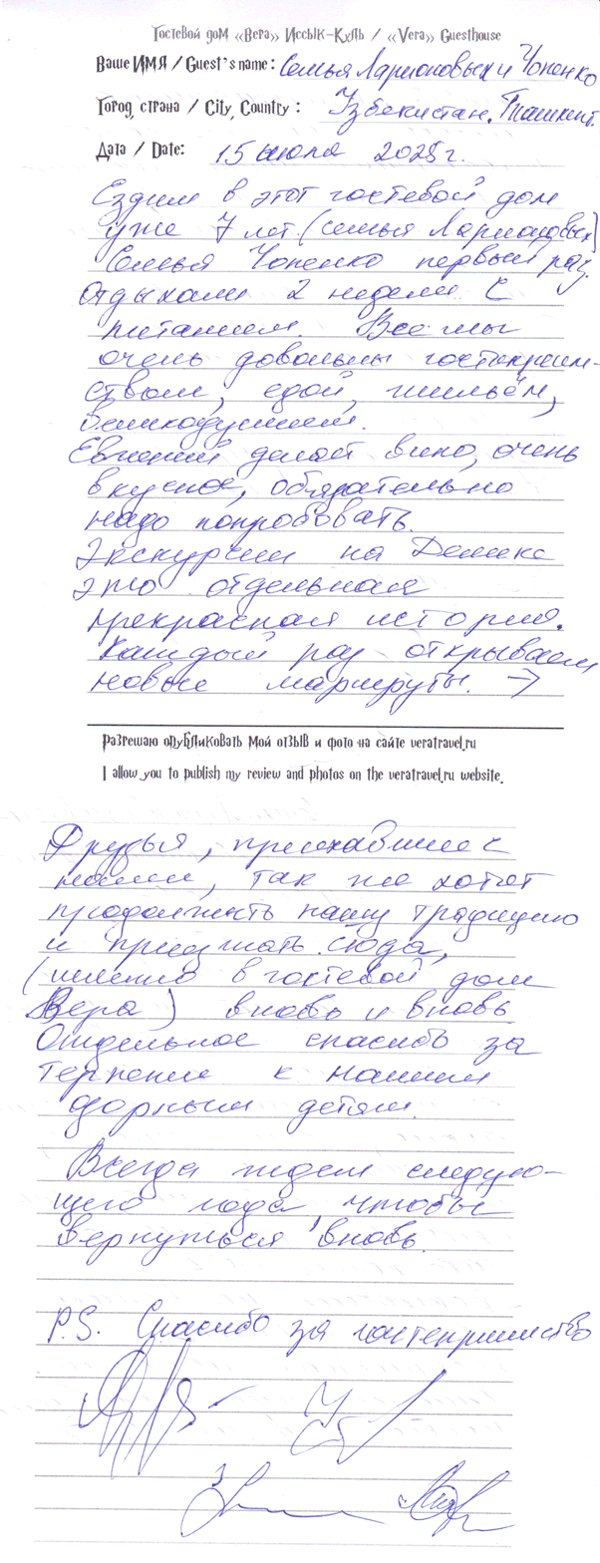 Гостевой дом «Вера» Иссык-Куль / «Vera» Guesthouse
Ваше ИМЯ / Guest's name: Семья Ларионовых и Чопенко
Город, страна / City, Country: Узбекистан. Ташкент.
Дата / Date: 15 июля 2025 г.
Ездим в этот гостевой дом
уже 7 лет. (семья Ларионовых)
Семья Чопенко первый раз.
Отдыхали 2 недели с
питанием. Все мы
очень довольны гостеприим-
ством, едой, жильём,
великодушием.
Евгений делает вино, очень
вкусное, обязательно
надо попробовать.
Экскурсии на Делике
это отдельная
прекрасная история.
Каждый раз открываем
новые маршруты. →
Разрешаю опубликовать мой отзыв и фото на сайте veratravel.ru
I allow you to publish my review and photos on the veratravel.ru website.
Друзья, приехавшие с
нами, так же хотят
продолжить нашу традицию
и приезжать сюда,
(именно в гостевой дом
Вера) вновь и вновь
Отдельное спасибо за
терпение к нашим
детям.
Всегда ждем следую-
щего года, чтобы
вернуться вновь.
P.S. Спасибо за гостеприимство